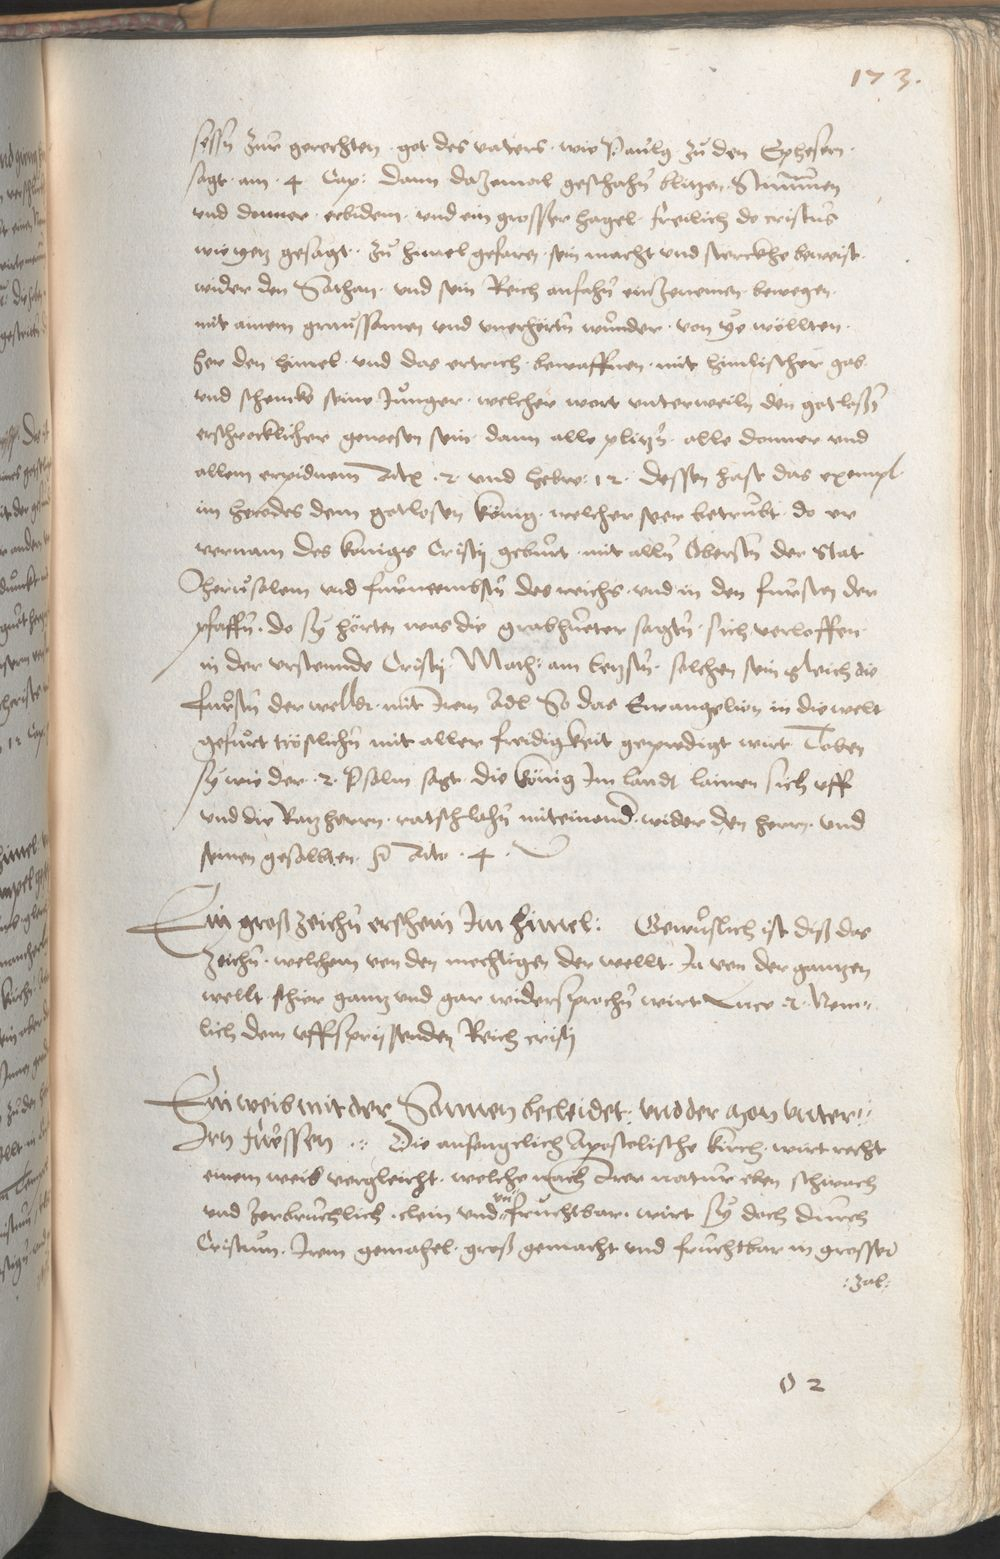 173.
sessn zur gerechten got des vaters wie Paulg zu den Ephesern
sagt am 4 Cap: dann dazemal geschahn blitzen Stimmen
vnd donner erbidem vnd ein grosser hagel freilich do cristus
wie yetz gesagt zu himel gefaren sein macht vnd sterckhe beweist
wider den Sathan vnd sein Reich anfahn einzenemen bewegen
mit ainem graussamen vnd vnerhörtn wunder von
Er den himel vnd das ertrich bewaffnen mit himlischer gab
vnd schencke seine Junger welcher wort vnterweiln den gotlosn
erschrecklicher gewesen sein dann alle plitzn alle donner vnd
allem erpidnem Act 2 vnd hebre: 12 dessen hast das exempl
im herodes dem gotlosen könig welcher seer betrubt do er
vernam des konigs Cristj geburt mit alln Obersten der Stat
Jherusalem vnd furneembstn des reichs vnd in den fursten der
pfaffn. do sy hörten was die grabhueter sagtn sich verloffen
in der vrstennde Cristj Math: am letzstn solchen sein gleich die
furstn der welldt mit Irem Adl So das Ewangelion in die welt
gefuert tröstlichn mit aller freidigkeit geprdigt wirt Toben
sy wie der 2 Psalm sagt die könig Im landt lainen sich vff
vnd die Ratzherrn ratschlahn miteinand wider den herrn vnd
seinen gesalbten Acto 4
Ein groß zeichn erschein Im himel: Gewuslich ist diß das
zeichn welchem von den mechtigen der wellt Ja von der gantzen
wellt schier gantz vnd gar widersprochn wirt Luce 2 Nem=
lich dem vffsprijssenden Reich cristj
Ein weib mit der Sonnen becleidet vnd der mon vnter
Irn fuessen Die anfengclich Apostolische kirch wirt recht
einem weib vergleicht welche nach Irer natur eben schwach
vnd zerbruchlich clein vnd vnfruchtbar wirt sy doch durch
Cristum Irem gemahel groß gemacht vnd fruchtbar in grosser
:zal:
O 2